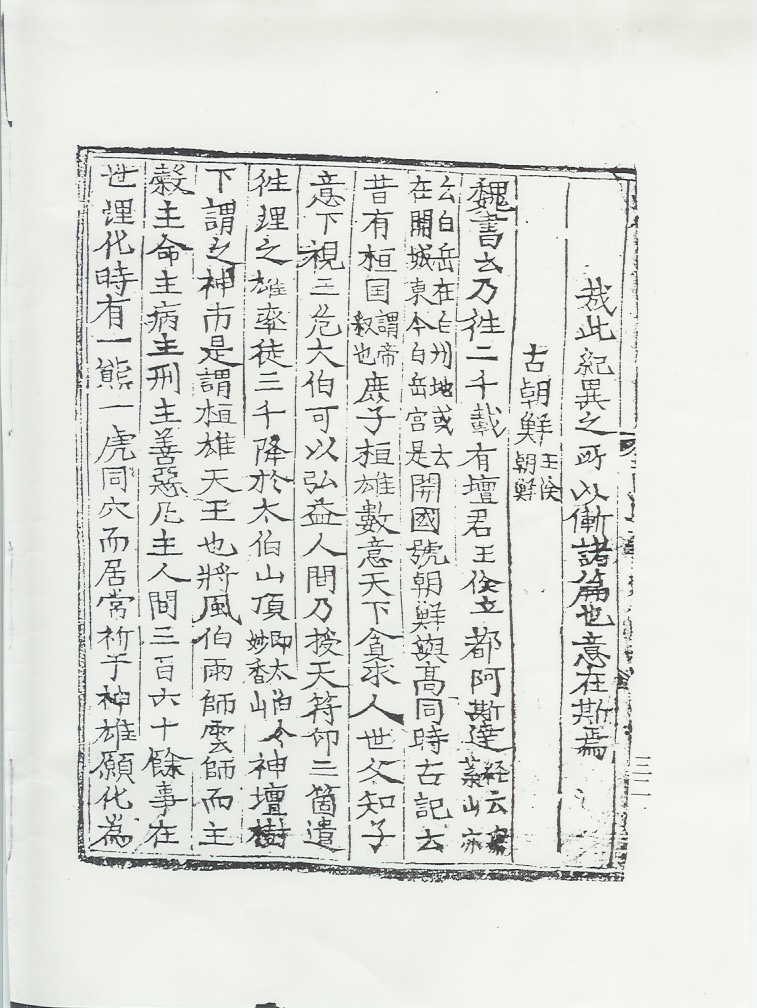 哉此紀異之所以慚諸篇也意在斯焉
古朝鮮王儉朝鮮
魏書云乃往二千載有壇君王儉立都阿斯達経云無葉山亦
云白岳在白州地或云在開城東今白岳宮是開國號朝鮮與高同時古記云
昔有桓国謂帝釈也庶子桓雄數意天下貪求人世父知子
意下視三危大伯可以弘益人間乃授天符印三箇遣
徃理之雄率徒三千降於太伯山頂即太伯今妙香山神壇樹
下謂之神市是謂桓雄天王也將風伯雨師雲師而主
糓主命主病主刑主善惡凡主人間三百六十餘事在
世理化時有一熊一虎同穴而居常祈于神雄願化爲